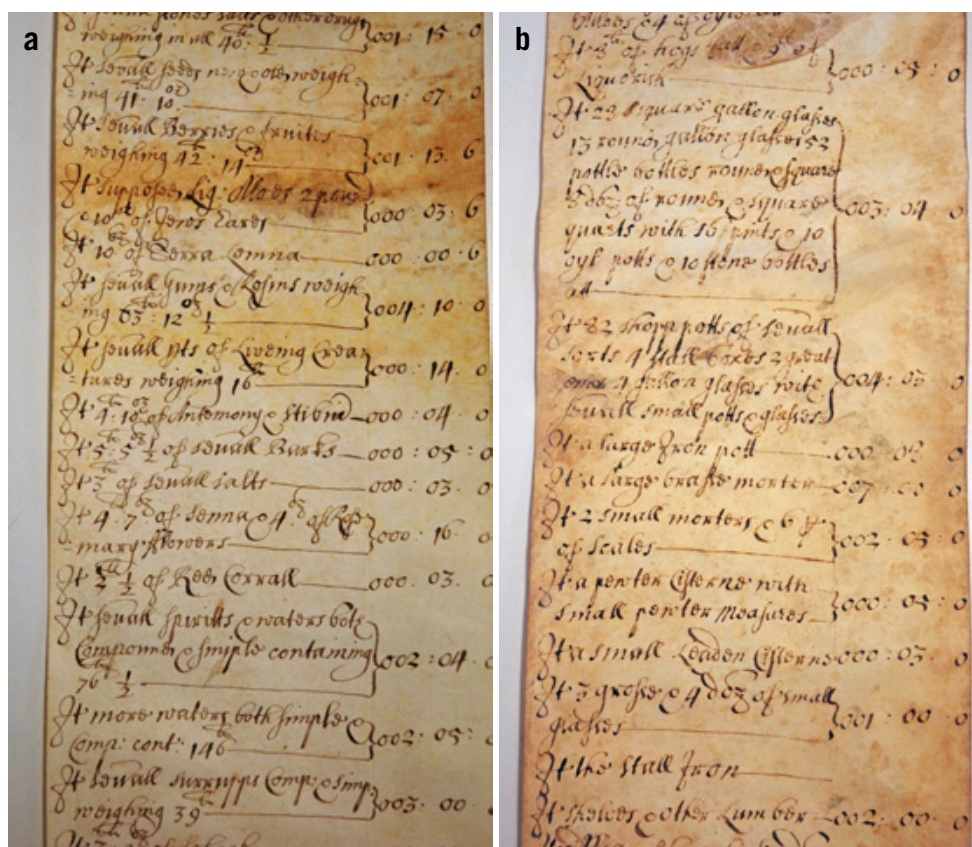 a
weighing in all 40: ½ 001: 15 - 0
It sevall seeds weigh
ing 41: 10: 001: 07. 0
It sevall Berries & fruites
weighing 42: 14 001. 13. 6
It supposed Lig: Alloes 2 pou
10 of 000: 03: 6
It 10 of Terra 000: 00. 6
It sevall Gums & Rosins weigh
ing 63: 12 ½ 004: 10. 0
It sevall pts of Liveing Crea=
=tures weighing 16 000: 14. 0
It 4: 10 of Antemony & Stibiu 000: 04. 0
It 5: 5 ½ of sevall Barks 000: 05: 0
It 3 of sevall salts 000: 03. 0
It 4. 7 of senna & 4 of Rose
=mary flowers 000. 16. 0
It 2 ½ of Red Corrall 000. 03. 0
It sevall spiritts & waters both
Compound & simple containing 002: 04.
76 ½
It more waters both simple &
Comp: cont: 146 002: 05:
It sevall surrupps Comp: & simp
weighing 39 003: 00
b
It 8 of hogs of
Liquorish 000: 05: 0
It 23 square gallon glasses
13 round gallon glasses 52
pottle bottles round & square
of round & square 003: 04. 0
quarts with 16 pints & 10
oyl potts & 10 stone bottles
att
It 82 shopp potts of sevall
sorts 4 stall boxes 2 great
4 gallon glasses with 004: 03 0
sevall small potts & glasses
It a large Iron pott 000. 0
It a large brasse morter 007. 00 0
It 2 small morters & 6 p
of scales 002. 05: 0
It a pewter Cisterne with
small pewter Measures 000: 05: 0
It a small Leaden Cisterne 000: 03. 0
It 3 grosse & 4 doz of small
glasses 001: 00 0
It the stall Iron
It shelves & other Lumber 002: 00. 0